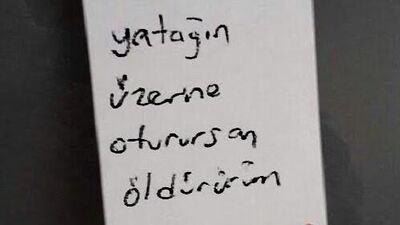 yatağın
üzerne
oturursan
öldürürüm